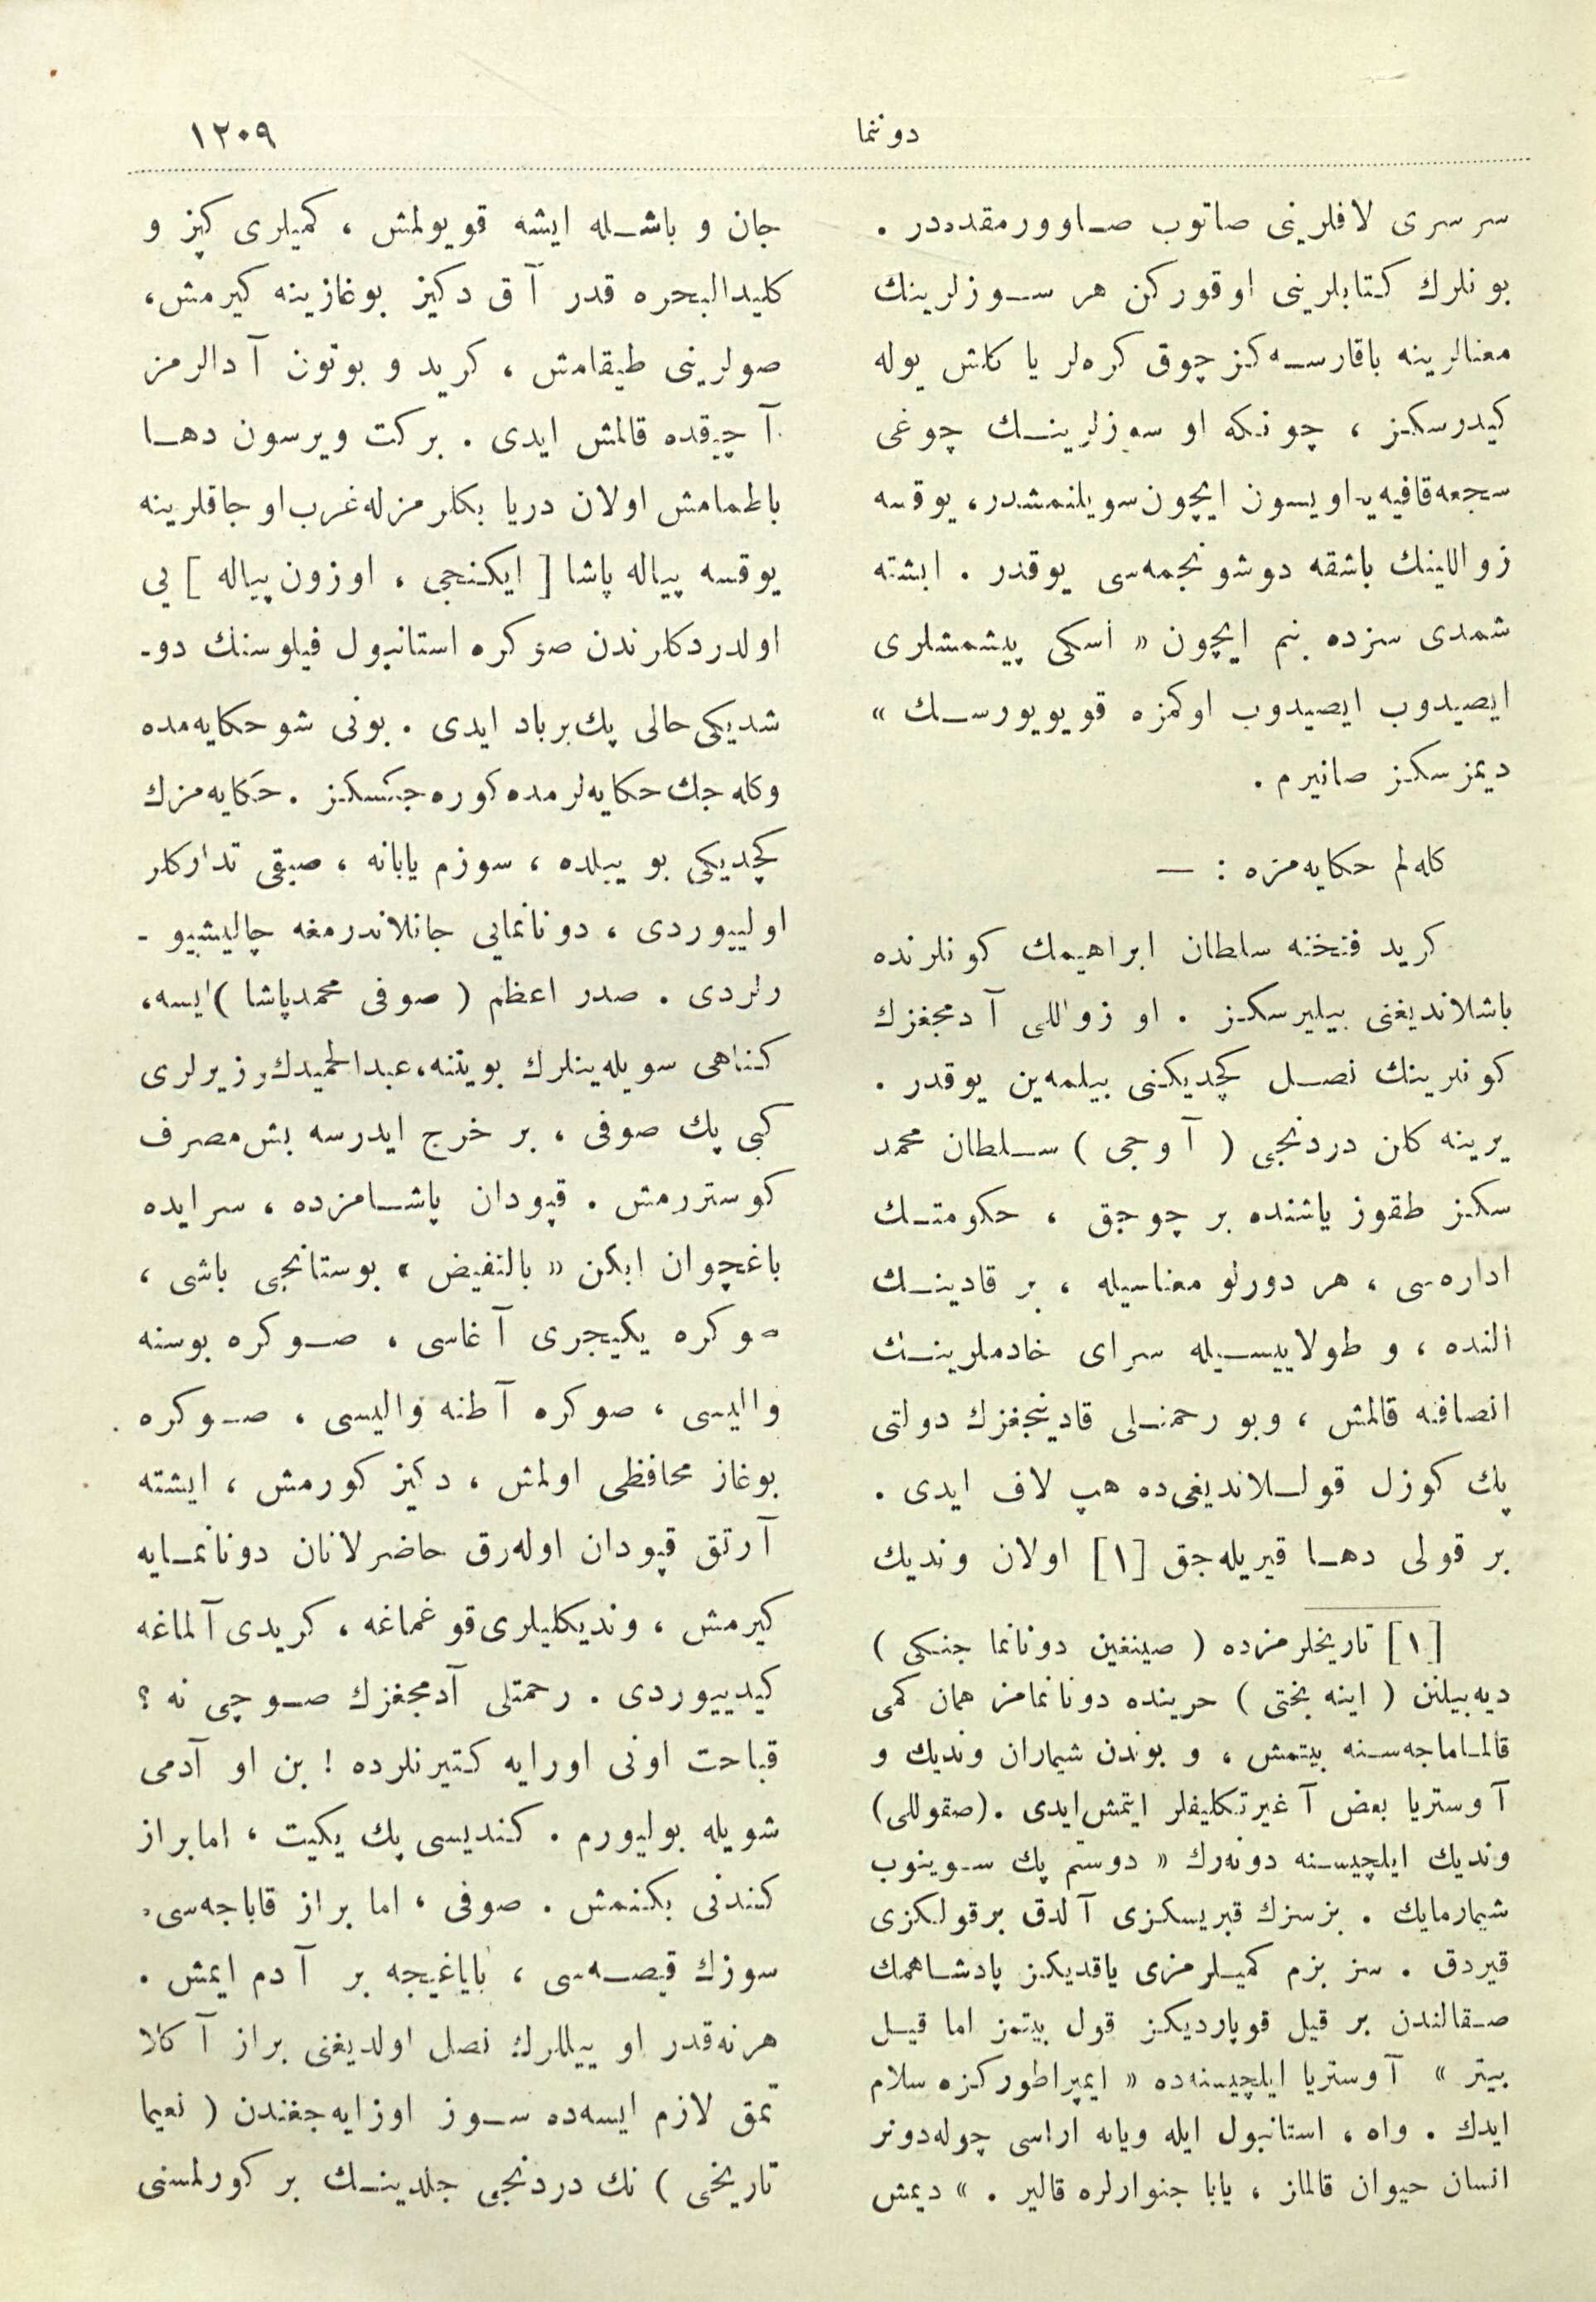 دوننما
١٢٠٩
سرسرى لافلرينى صاتوب صاوورمقده‌در .
بونلرك كتابلرينى اوقوركن هر سوزلرينك
معنالرينه باقارسه‌كز چوق كره‌لر يا كلش يوله
كيدرسكز ، چونكه او سوزلرينك چوغى
سجعه قافيه‌يه اويسون ايچون سويلنمشدر، يوقسه
زواللينك باشقه دوشونجمه‌سى يوقدر . ايشته
شمدى سزده بنم ايچون « اسكى پيشمشلرى
ايصيدوب ايصيدوب اوكمزه قويويورسك »
ديمزسكز صانيرم .
كله‌لم حكايه‌مزه : —
كريد فتخنه سلطان ابراهيمك كونلرنده
باشلانديغنى بيليرسكز . او زواللى آدمجغزك
كونلرينك نصل كچديكنى بيلمه‌ين يوقدر .
يرينه كلن دردنجى ( آوجى ) سلطان محمد
سكز طقوز ياشنده بر چوجق ، حكومتك
اداره‌سى ، هر دورلو معناسيله ، بر قادينك
النده ، و طولاييسيله سراى خادملرينك
انصافنه قالمش ، وبو رحمتلى قادينجغزك دولتى
پك كوزل قوللانديغى‌ده هپ لاف ايدى .
بر قولى دها قيريله‌جق [١] اولان ونديك
[١] تاريخلرمزده ( صينغين دونانما جنكى )
ديه‌بيلنن ( اينه بختى ) حربنده دونانمامز همان كمى
قالماماجه‌سنه بيتمش ، و بوندن شيماران ونديك و
آوستريا بعض آغيرتكليفلر ايتمش‌ايدى .(صقوللى)
ونديك ايلچيسنه دونه‌رك « دوستم پك سوينوب
شيمارمايك . بز سزك قبريسكزى آلدق برقولكزى
قيردق . سز بزم كميلرمزى ياقديكز پادشاهمك
صقالندن بر قيل قوپارديكز قول بيتمز اما قيل
بيتر » آوستريا ايلچيسنه‌ده « ايمپراطوركزه سلام
ايدك . واه ، استانبول ايله ويانه اراسى چوله‌دونر
انسان حيوان قالماز ، يابا جنوارلره قالير . » ديمش
جان و باشله ايشه قويولمش ، كميلرى كپز و
كليدالبحره قدر آق دكيز بوغازينه كيرمش،
صولرينى طيقامش ، كريد و بوتون آدالرمز
آچيقده قالمش ايدى . بركت ويرسون دها
باطمامش اولان دريا بكلرمزله‌غرب‌اوجاقلرينه
يوقسه پياله پاشا [ ايكنجى ، اوزون پياله ] يى
اولدردكلرندن صوكره استانبول فيلوسنك دو-
شديكى حالى پك برباد ايدى . بونى شو حكايه‌مده
وكله‌جك حكايه‌لرمده كوره‌جكسكز . حكايه‌مزك
كچديكى بو ييلده ، سوزم يابانه ، صيقى تداركلر
اولييوردى ، دونانمايى جانلاندرمغه چاليشيو -
رلردى . صدر اعظم ( صوفى محمدپاشا ) ايسه،
كناهى سويله‌ينلرك بويننه، عبدالحميدك وزيرلرى
كبى پك صوفى ، بر خرج ايدرسه بش مصرف
كوستررمش . قپودان پاشامزده ، سرايده
باغچوان ايكن « بالتفيض » بوستانجى باشى ،
صوكره يكيچرى آغاسى ، صوكره بوسنه
واليسى ، صوكره آطنه واليسى ، صوكره
بوغاز محافظى اولمش ، دكيز كورمش ، ايشته
آرتق قپودان اوله‌رق حاضرلانان دونانمايه
كيرمش ، ونديكليلرى‌قوغماغه ، كريدى آلماغه
كيدييوردى . رحمتلى آدمجغزك صوچى نه ؟
قباحت اونى اورايه كتيرنلرده ! بن او آدمى
شويله بوليورم . كنديسى پك يكيت ، اما براز
كندنى بكنمش . صوفى ، اما براز قاباجه‌سى،
سوزك قيصه‌سى ، باياغيجه بر آدم ايمش .
هر نه‌قدر او ييللرك نصل اولديغنى براز آكلا
تمق لازم ايسه‌ده سوز اوزايه‌جغندن ( نعيما
تاريخى ) نك دردنجى جلدينك بر كورلمسنى